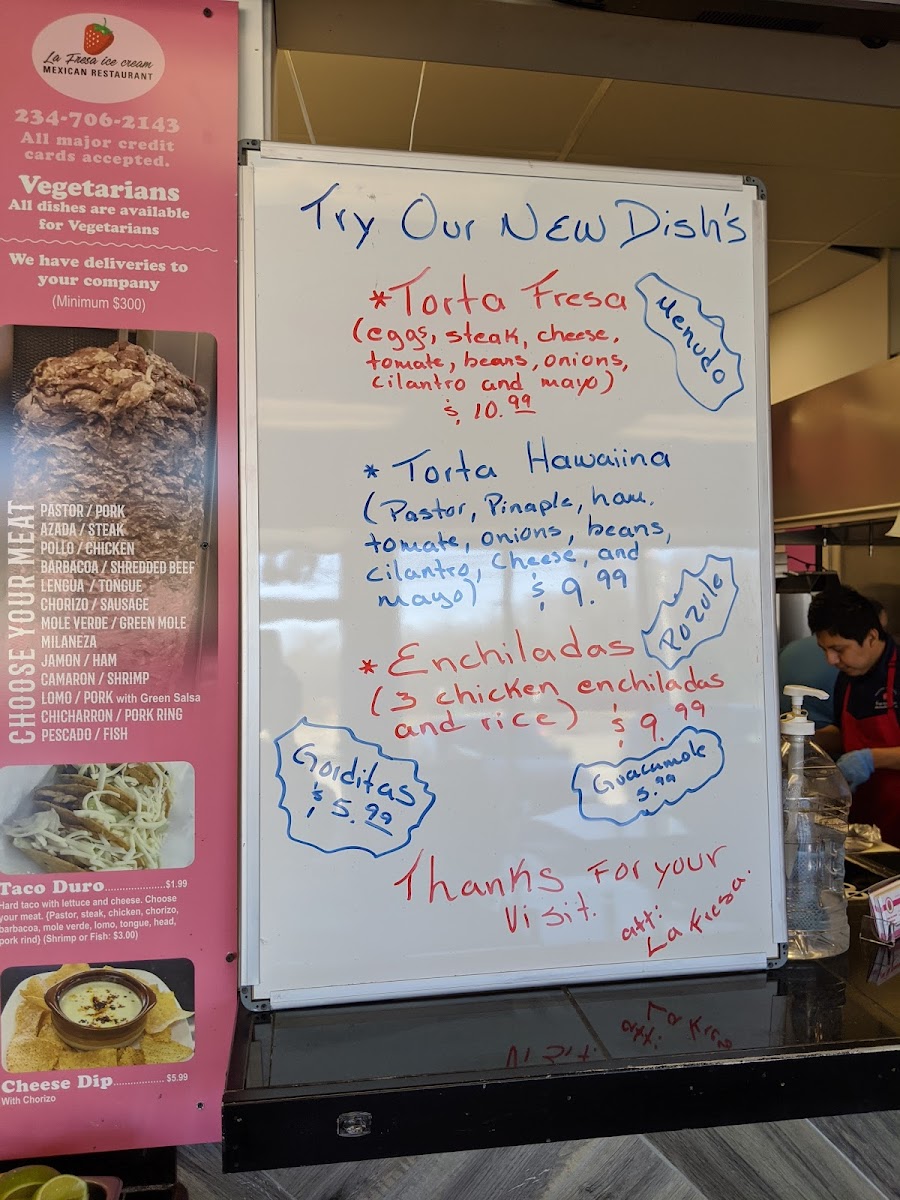 La Fresa ice cream
MEXICAN RESTAURANT
234-706-2143
All major credit
cards accepted.
Vegetarians
All dishes are available
for Vegetarians
We have deliveries to
your company
(Minimum $300)
CHOOSE YOUR MEAT
PASTOR / PORK
AZADA / STEAK
POLLO / CHICKEN
BARBACOA / SHREDDED BEEF
LENGUA / TONGUE
CHORIZO / SAUSAGE
MOLE VERDE / GREEN MOLE
MILANEZA
JAMON / HAM
CAMARON / SHRIMP
LOMO / PORK with Green Salsa
CHICHARRON / PORK RING
PESCADO / FISH
Taco Duro....................$1.99
Hard taco with lettuce and cheese. Choose
your meat. (Pastor, steak, chicken, chorizo,
barbacoa, mole verde, lomo, tongue, head,
pork rind) (Shrimp or Fish: $3.00)
Cheese Dip................. $5.99
With Chorizo
Try Our NEW Dish's
*Torta Fresa
(eggs, steak, cheese,
tomate, beans, onions,
cilantro and mayo)
$ 10.99
Menudo
* Torta Hawaiina
(Pastor, Pinaple, ham,
tomate, onions, beans,
cilantro, Cheese, and
mayo) $ 9.99
Pozole
* Enchiladas
(3 chicken enchiladas
and rice) $ 9.99
Gorditas
$ 5.99
Guacamole
5.99
Thanks For your
Visit.
att:
La Fresa.